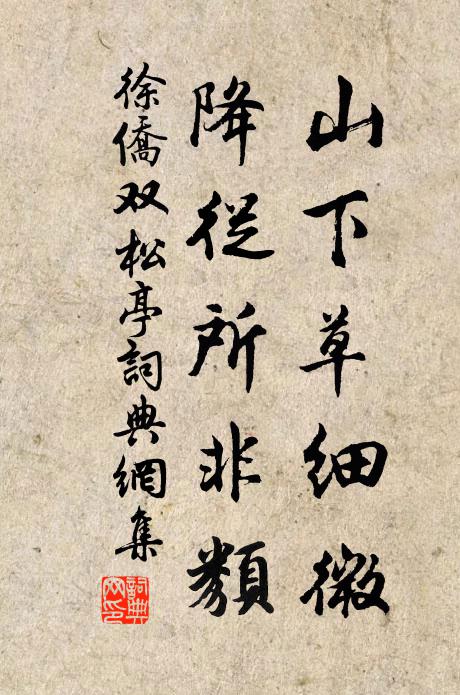 山下草細微
降從所非類
徐僑双松亭詞典網集
詞典
網印